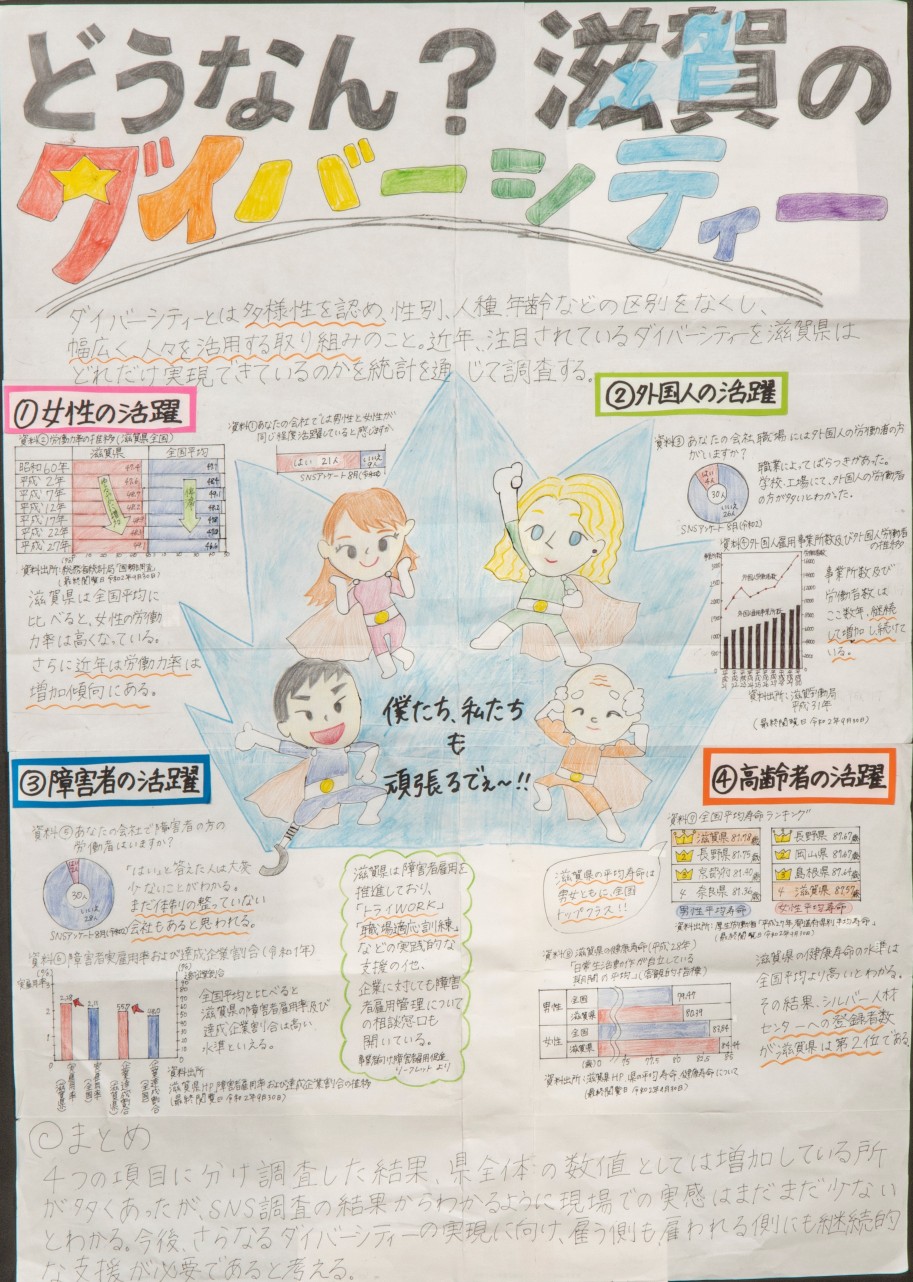 どうなん？滋賀の
ダイバーシティー
ダイバーシティーとは多様性を認め、性別、人種、年齢などの区別をなくし、
幅広く人々を活用する取り組みのこと。近年、注目されているダイバーシティーを滋賀県は
どれだけ実現できているのかを統計を通じて調査する。
①女性の活躍
資料①あなたの会社では男性と女性が
同じ程度活躍していると感じますか。
はい 21人
いいえ 9人
SNSアンケート8月(令和2)
資料②労働力率の推移(滋賀県全国)
滋賀県
全国平均
昭和60年
平成2年
平成7年
平成12年
平成17年
平成22年
平成27年
(最終閲覧日令和2年9月30日)
滋賀県は全国平均に
比べると、女性の労働
力率は高くなっている。
さらに近年は労働力率は
増加傾向にある。
②外国人の活躍
資料③あなたの会社、職場には外国人の労働者の方
がいますか？
はい 4人
30人
いいえ 26人
職業によってばらつきがあった。
学校、工場にて、外国人の労働者
の方が多いとわかった。
SNSアンケート8月(令和2)
資料④外国人雇用事業所数及び外国人労働者
の推移
外国人労働者数
外国人雇用事業所数
事業所数及び
労働者数は
ここ数年、継続
して増加し続けて
いる。
資料出所：滋賀労働局
平成31年
(最終閲覧日令和2年9月30日)
僕たち、私たち
も
頑張るでぇ〜!!
③障害者の活躍
資料⑤あなたの会社で障害者の方の
労働者はいますか？
30人
いいえ 28人
「はい」と答えた人は大変
少ないことがわかる。
まだ体制の整っていない
会社もあると思われる。
SNSアンケート8月(令和2)
資料⑥障害者実雇用率および達成企業割合(令和1年)
実雇用率
達成企業割合
全国平均と比べると
滋賀県の障害者雇用率及び
達成企業割合は高い
水準といえる。
資料出所
滋賀県HP障害雇用率および達成企業割合の推移
(最終閲覧日令和2年9月30日)
滋賀県は障害者雇用を
推進しており、
「トライWORK」
「職場適応訓練」
などの実践的な
支援の他、
企業に対しても障害
者雇用管理について
の相談窓口も
開いている。
事業主向け障害者雇用促進
リーフレットより
④高齢者の活躍
資料⑦全国平均寿命ランキング
滋賀県 81.78歳
長野県 81.75歳
京都府 81.40歳
4 奈良県 81.36歳
男性平均寿命
長野県 87.67歳
岡山県 87.67歳
島根県 87.64歳
4 滋賀県 87.57歳
女性平均寿命
資料出所：厚生労働省「平成27年都道府県別平均寿命」
(最終閲覧日令和2年9月30日)
滋賀県の平均寿命は
男女ともに、全国
トップクラス!!
資料⑧滋賀県の健康寿命(平成28年)
「日常生活動作が自立している
期間の平均」(客観的な指標)
男性
全国 79.47
滋賀県 80.39
女性
全国 83.84
滋賀県 84.44
資料出所：滋賀県HP、県の平均寿命、健康寿命について
(最終閲覧日令和2年9月30日)
滋賀県の健康寿命の水準は
全国平均より高いとわかる。
その結果、シルバー人材
センターへの登録者数
が滋賀県は第2位である。
◎まとめ
4つの項目に分け調査した結果、県全体の数値としては増加している所
が多くあったが、SNS調査の結果からわかるように現場での実感はまだまだ少ない
とわかる。今後、さらなるダイバーシティーの実現に向け、雇う側も雇われる側にも継続的
な支援が必要であると考える。